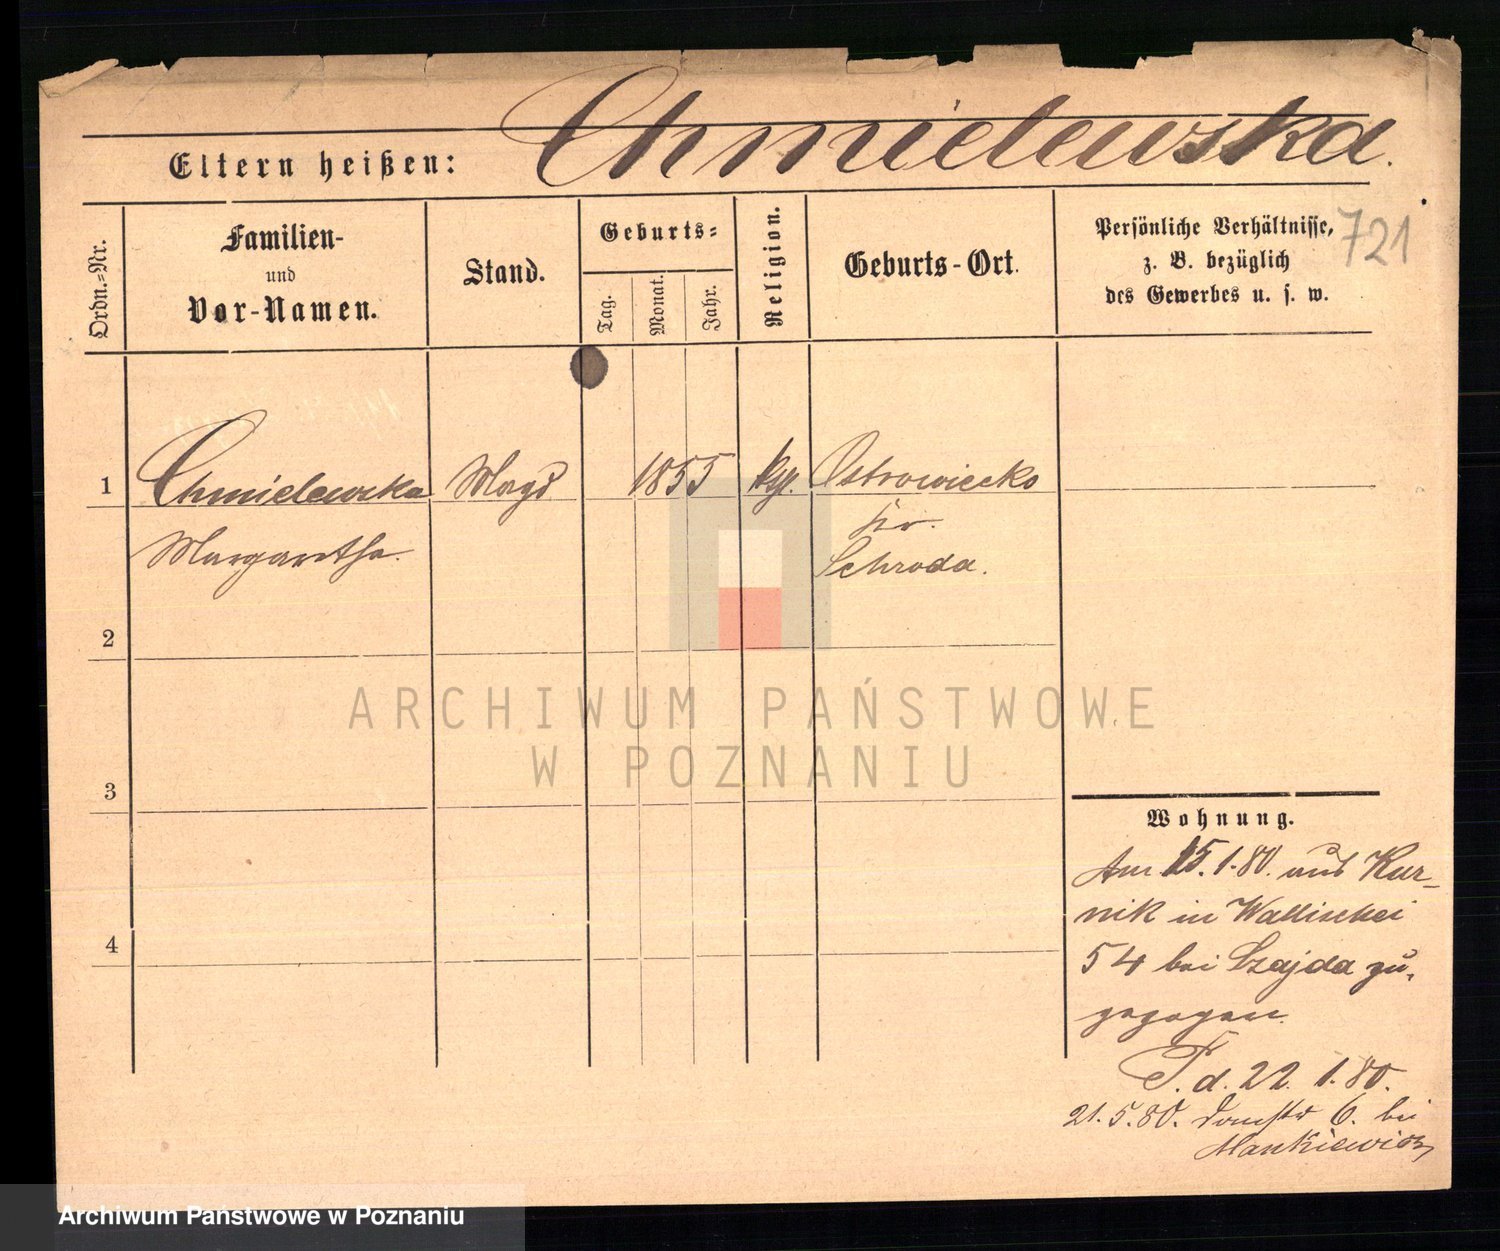 Chmielewska.
Eltern heißen:
721
Ordn.-Nr.
Familien-
und
Vor-Namen.
Stand.
Geburts-
Tag.
Monat.
Jahr.
Religion.
Geburts-Ort.
Persönliche Verhältnisse,
z. B. bezüglich
des Gewerbes u. s. w.
1
Chmielewska
Margaretha.
Magd
1855
Ostrowiecko
kr.
Schroda.
2
3
4
Wohnung.
Am 15.1.80. aus Kur-
nik in Wallischei
54 bei Szajda zu-
gezogen.
T. d. 22. 1. 80.
21. 5. 80. Domstr 6. bei
Mankiewicz
ARCHIWUM PAŃSTWOWE
W POZNANIU
Archiwum Państwowe w Poznaniu